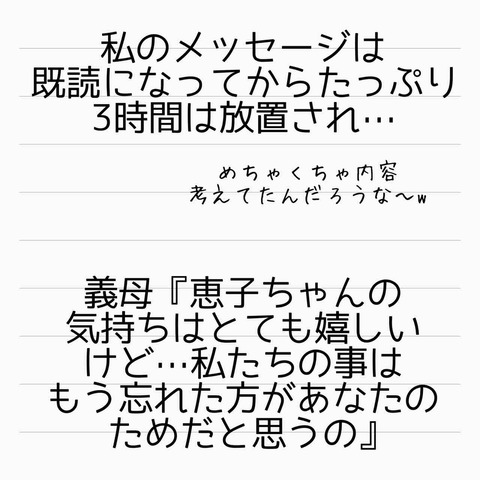 私のメッセージは
既読になってからたっぷり
3時間は放置され…
めちゃくちゃ内容
考えてたんだろうな〜w
義母『恵子ちゃんの
気持ちはとても嬉しい
けど…私たちの事は
もう忘れた方があなたの
ためだと思うの』